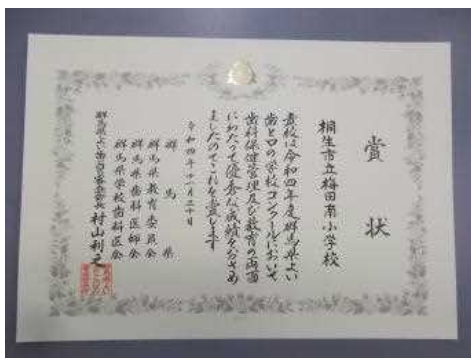 賞状
桐生市立梅田南小学校
貴校は令和四年度群馬県よい
歯と口の学校コンクールにおいて
歯科保健管理及び教育の両面
にわたって優秀な成績をおさめ
ましたのでこれを賞します
令和四年十一月二十日
群馬県
群馬県教育委員会
群馬県歯科医師会
群馬県学校歯科医会
村山利之